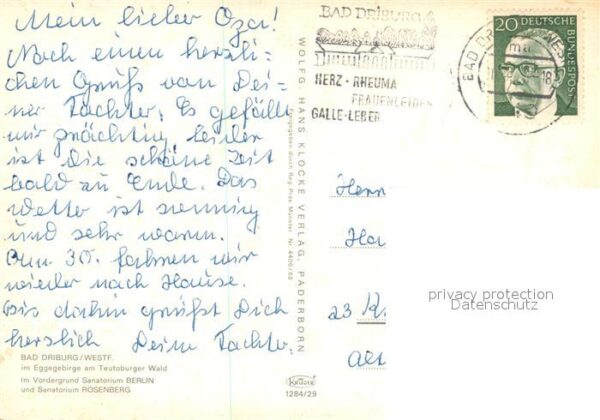 Mein lieber Opa!
Noch einen herzli-
chen Gruß von Dei-
ner Tochter. Es gefällt
mir prächtig, leider
ist die schöne Zeit
bald zu Ende. Das
Wetter ist sonnig
und sehr warm.
Am 30. fahren wir
wieder nach Hause.
Bis dahin grüßt Dich
herzlich Deine Tochter.
BAD DRIBURG/WESTF.
im Eggegebirge am Teutoburger Wald
Im Vordergrund Sanatorium BERLIN
und Sanatorium ROSENBERG
WOLFG. HANS KLOCKE VERLAG, PADERBORN
Freigegeben durch Reg. Präs. Münster Nr. 4406/68
KRÜGER
1284/29
BAD DRIBURG
HERZ · RHEUMA
FRAUENLEIDEN
GALLE · LEBER
BAD DR
18
20 DEUTSCHE
BUNDESPOST
Herrn
Ha
23 K
Alt
privacy protection
Datenschutz